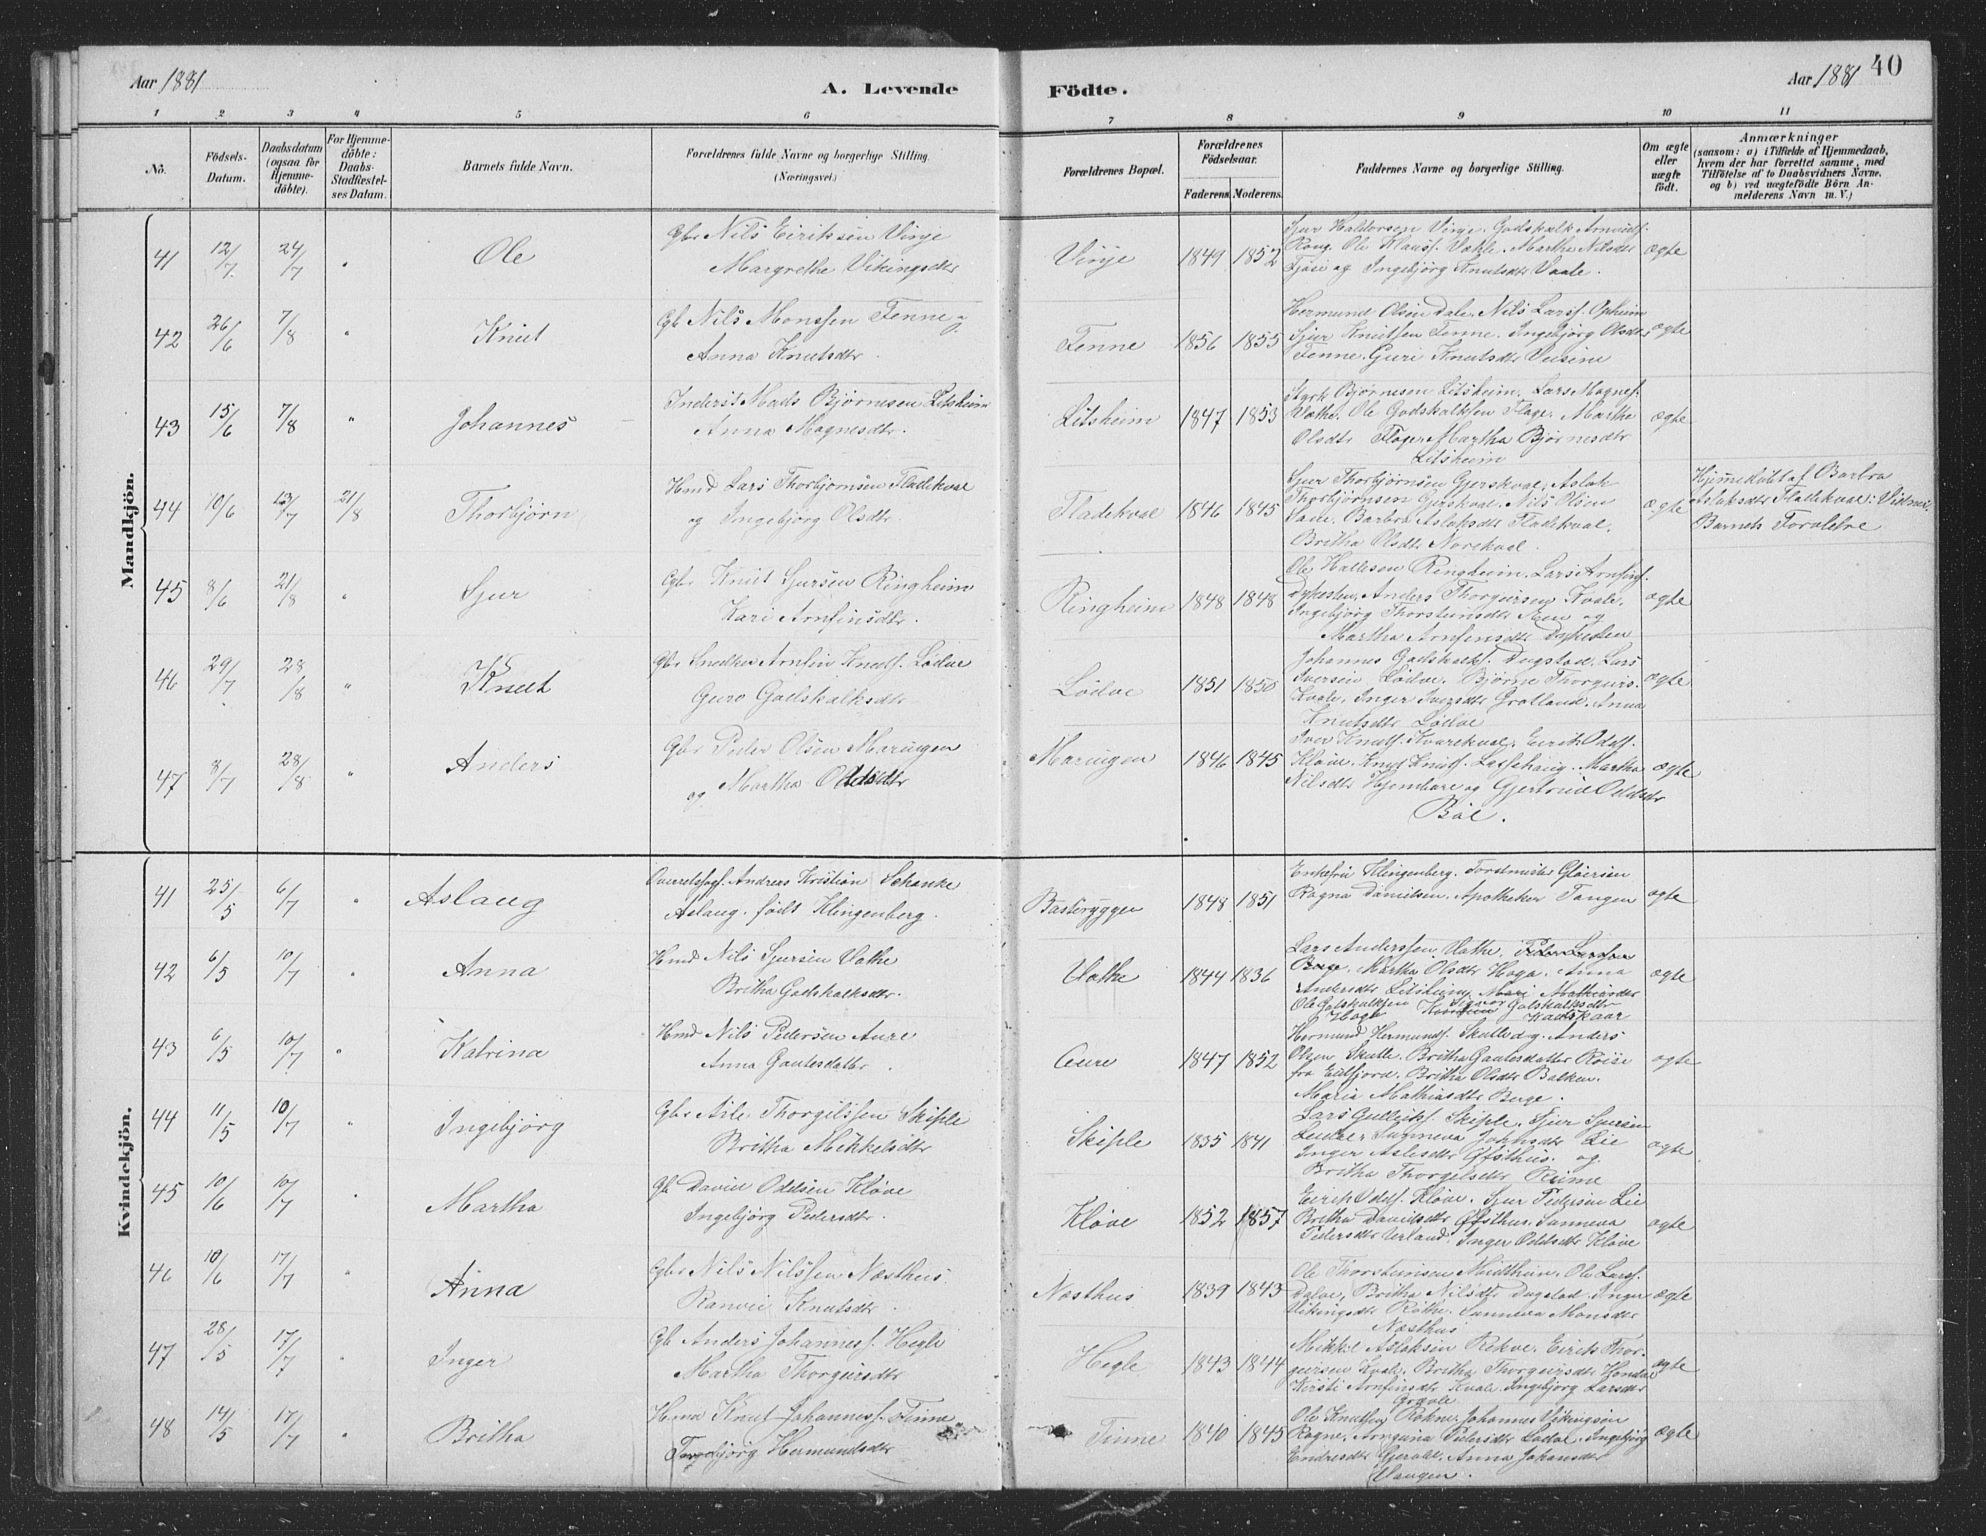 Aar 1881
A. Levende
Födte.
Aar 1881
40
1 2 3 4 5 6 7 8 9 10 11
No.
Födsels-Datum.
Daabsdatum (ogsaa for Hjemme-döbte).
For Hjemme-döbte: Daabs-Stadfæstel-ses Datum.
Barnets fulde Navn.
Forældrenes fulde Navne og borgerlige Stilling. (Næringsvei.)
Forældrenes Bopæl.
Forældrenes Födselsaar.
Faderens. Moderens.
Faddernes Navne og borgerlige Stilling.
Om ægte eller uægte födt.
Anmærkninger
(saasom: a) i Tilfælde af Hjemmedaab, hvem der har forrettet samme, med Tilföielse af to Daabsvidners Navne, og b) ved uægtefödte Börn An-melderens Navn m. V.)
Mandkjön.
41 12/7 24/7 " Ole
Gbr Nils Eiriksen Virje
Margrethe Vikingsdtr
Virje 1849 1852
Sjur Haldorsen Virje. Godskalk Arnundsf.
Rong. Ole Klausf. Væhle. Martha Nilsdtr
Tjøsi og Ingebjörg Knutsdtr Saale.
ægte
42 26/6 7/8 " Knut
Gb Nils Monssen Tenne og
Anna Knutsdtr.
Tenne 1856 1855
Hermund Olsen Dale, Nils Larsf. Opheim
Sjur Knutsen Tenne. Ingebjörg Olsdtr
Tenne. Guri Knutsdtr
ægte
43 15/6 7/8 " Johannes
Inderst Mads Björnesen Litsheim
Anna Magnesdtr.
Litsheim 1847 1853
Styrk Björnesen Litsheim. Lars Magnesf.
Væthe. Ole Godskalksen Flage. Martha
Olsdtr Flage. Martha Björnesdtr
Litsheim
ægte
44 10/6 13/7 21/8 Thorbjörn
Hmd Lars Thorbjornsen Fladekval
og Ingebjörg Olsdtr.
Fladekval 1846 1845
Sjur Thorbjörnsen Gjerskval, Aslak
Thorbjörnsen Gjerskval. Nils Olsen
Sade. Barbra Aslaksdtr Fladekval.
Britha Olsdtr Norekval.
ægte
Hjemmedöbt af Barbra
Aslaksdtr Fladekval: Vidner:
Barnets Forældre
45 8/6 21/8 " Sjur
Gbr Knut Sjursen Ringheim
Kari Arnfinsdtr.
Ringheim 1848 1848
Ole Hallesen Ringheim. Lars Arnfinsf.
Dykesten, Anders Thorgiersen Kvale.
Ingebjörg Thorsteinsdtr og
Martha Arnfinsdtr Dykesten
ægte
46 29/7 28/8 " Knut
Gbr Snedker Arnfin Knutsf. Lödve
Guro Godskalksdtr
Lödve 1851 1850
Johannes Godskalksf. Dugstad. Lars
Iversen Lödve. Björne Thorguirs.
Kvale. Inger Iversdtr Grotland. Anna
Knutsdtr Lödve
ægte
47 8/7 28/8 " Anders
Gbr Peder Olsen Maringen
og Martha Oddsdtr
Maringen 1846 1845
Iver Knutsf. Kvarekval. Eirik Oddsf.
Klöve. Knut Knutsf. Martha
Nilsdtr og Gjertrud Oddsdtr
Böe.
ægte
Kvindekjön.
41 25/5 6/7 " Aslaug
Overretssagf. Andreas Kristian Schanke
Aslaug, födt Klingenberg.
Basteryggen 1848 1851
Enkefru Klingenberg. Forstmester Glöersen
Ragna Danielsen. Apotheker Tangen
ægte
42 6/5 10/7 " Anna
Hmd Nils Sjursen Væthe
Britha Godskalksdtr.
Væthe 1844 1836
Lars Anderssen Væthe, Peder Larssen
Berge. Martha Olsdtr Haga. Anna
Andersdtr Litsheim. Mari Mathiasdtr
Ole Godskalksen Haga Godskalksdtr
ægte
43 6/5 10/7 " Katrina
Hmd Nils Pedersen Aure
Anna Gautesdatter.
Aure 1847 1852
Hermund Hermundsf. Skulle og Anders
Olsen Skulle. Britha Gautesdatter Röise
fra Eidfjord. Britha Olsdtr Bakken.
Maria Mathiasdtr Berge.
ægte
44 11/5 10/7 " Ingebjörg
Gbr Asle Thorgilssen Skiple
Britha Mikkelsdtr
Skiple 1835 1841
Lars Gulleiksf. Skiple. Sjur Sjursen
Sunneva Johnsdtr Lie
Inger Aslesdtr Öfsthus. og
Britha Thorgilsdtr Rime
ægte
45 10/6 10/7 " Martha
Gb David Oddsen Klöve
Ingebjörg Pedersdtr.
Klöve 1852 1857
Eirik Oddsf. Klöve. Sjur Pedersen Lie
Britha Davidsdtr Öfsthus. Sunneva
Pedersdtr Urland. Inger Oddsdtr Klöve
ægte
46 10/6 17/7 " Anna
Gbr Nils Nilssen Næsthus.
Ranvei Knutsdtr.
Næsthus 1839 1843
Ole Thorsteinsen Midtheim. Ole Larsf.
Dalve, Britha Nilsdtr Dugstad. Inger
Vikingsdtr Röthe. Sunneva Monsdtr
Næsthus
ægte
47 28/5 17/7 " Inger
Gb Anders Johannesf. Hegle
Martha Thorguirsdtr
Hegle 1843 1844
Mikkil Aslaksen Rekve. Eirik Thor-
guirsen Kvale. Britha Thorguirsdtr
Kirsti Arnfinsdtr Kvale. Ingebjörg Larsdtr
ægte
48 14/5 17/7 " Britha
Hmd Knut Johannesf. Finne
Ingebjörg Hermundsdtr
Finne 1840 1845
Ole Knutsen Rokne, Johannes Vikingsen
Rogne. Arnguna Pedersdtr Lödve. Ingebjörg
Endresdtr Gjerald. Anna Johansdtr
Vangen.
ægte